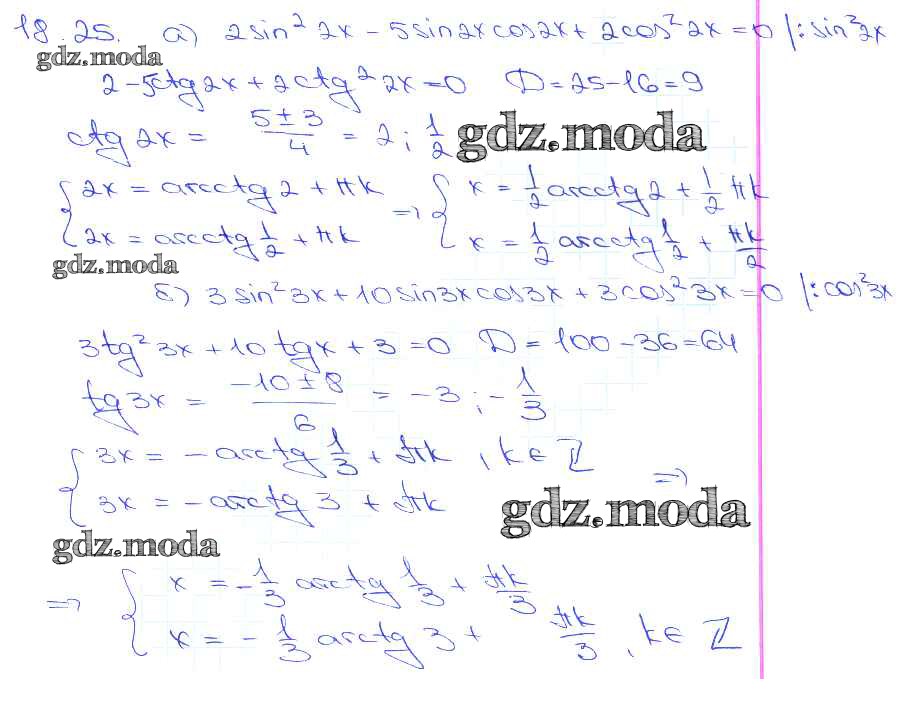 18.25. а) 2sin² 2x − 5sin2xcos2x + 2cos² 2x = 0 |: sin² 2x
gdz.moda
2 − 5ctg2x + 2ctg² 2x = 0 D = 25−16 = 9
ctg 2x = (5 ± 3)/4 = 2 ; 1/2 gdz.moda
{ 2x = arcctg 2 + πk => { x = 1/2 arcctg 2 + 1/2 πk
2x = arcctg 1/2 + πk x = 1/2 arcctg 1/2 + πk/2
gdz.moda
б) 3sin² 3x + 10sin3xcos3x + 3cos² 3x = 0 |: cos² 3x
3tg² 3x + 10 tgx + 3 = 0 D = 100 − 36 = 64
tg3x = (−10 ± 8)/6 = −3 ; −1/3
{ 3x = −arctg 1/3 + πk , k ∈ Z
3x = −arctg 3 + πk =>
gdz.moda
gdz.moda
=> { x = −1/3 arctg 1/3 + πk/3
x = −1/3 arctg 3 + πk/3 , k ∈ Z